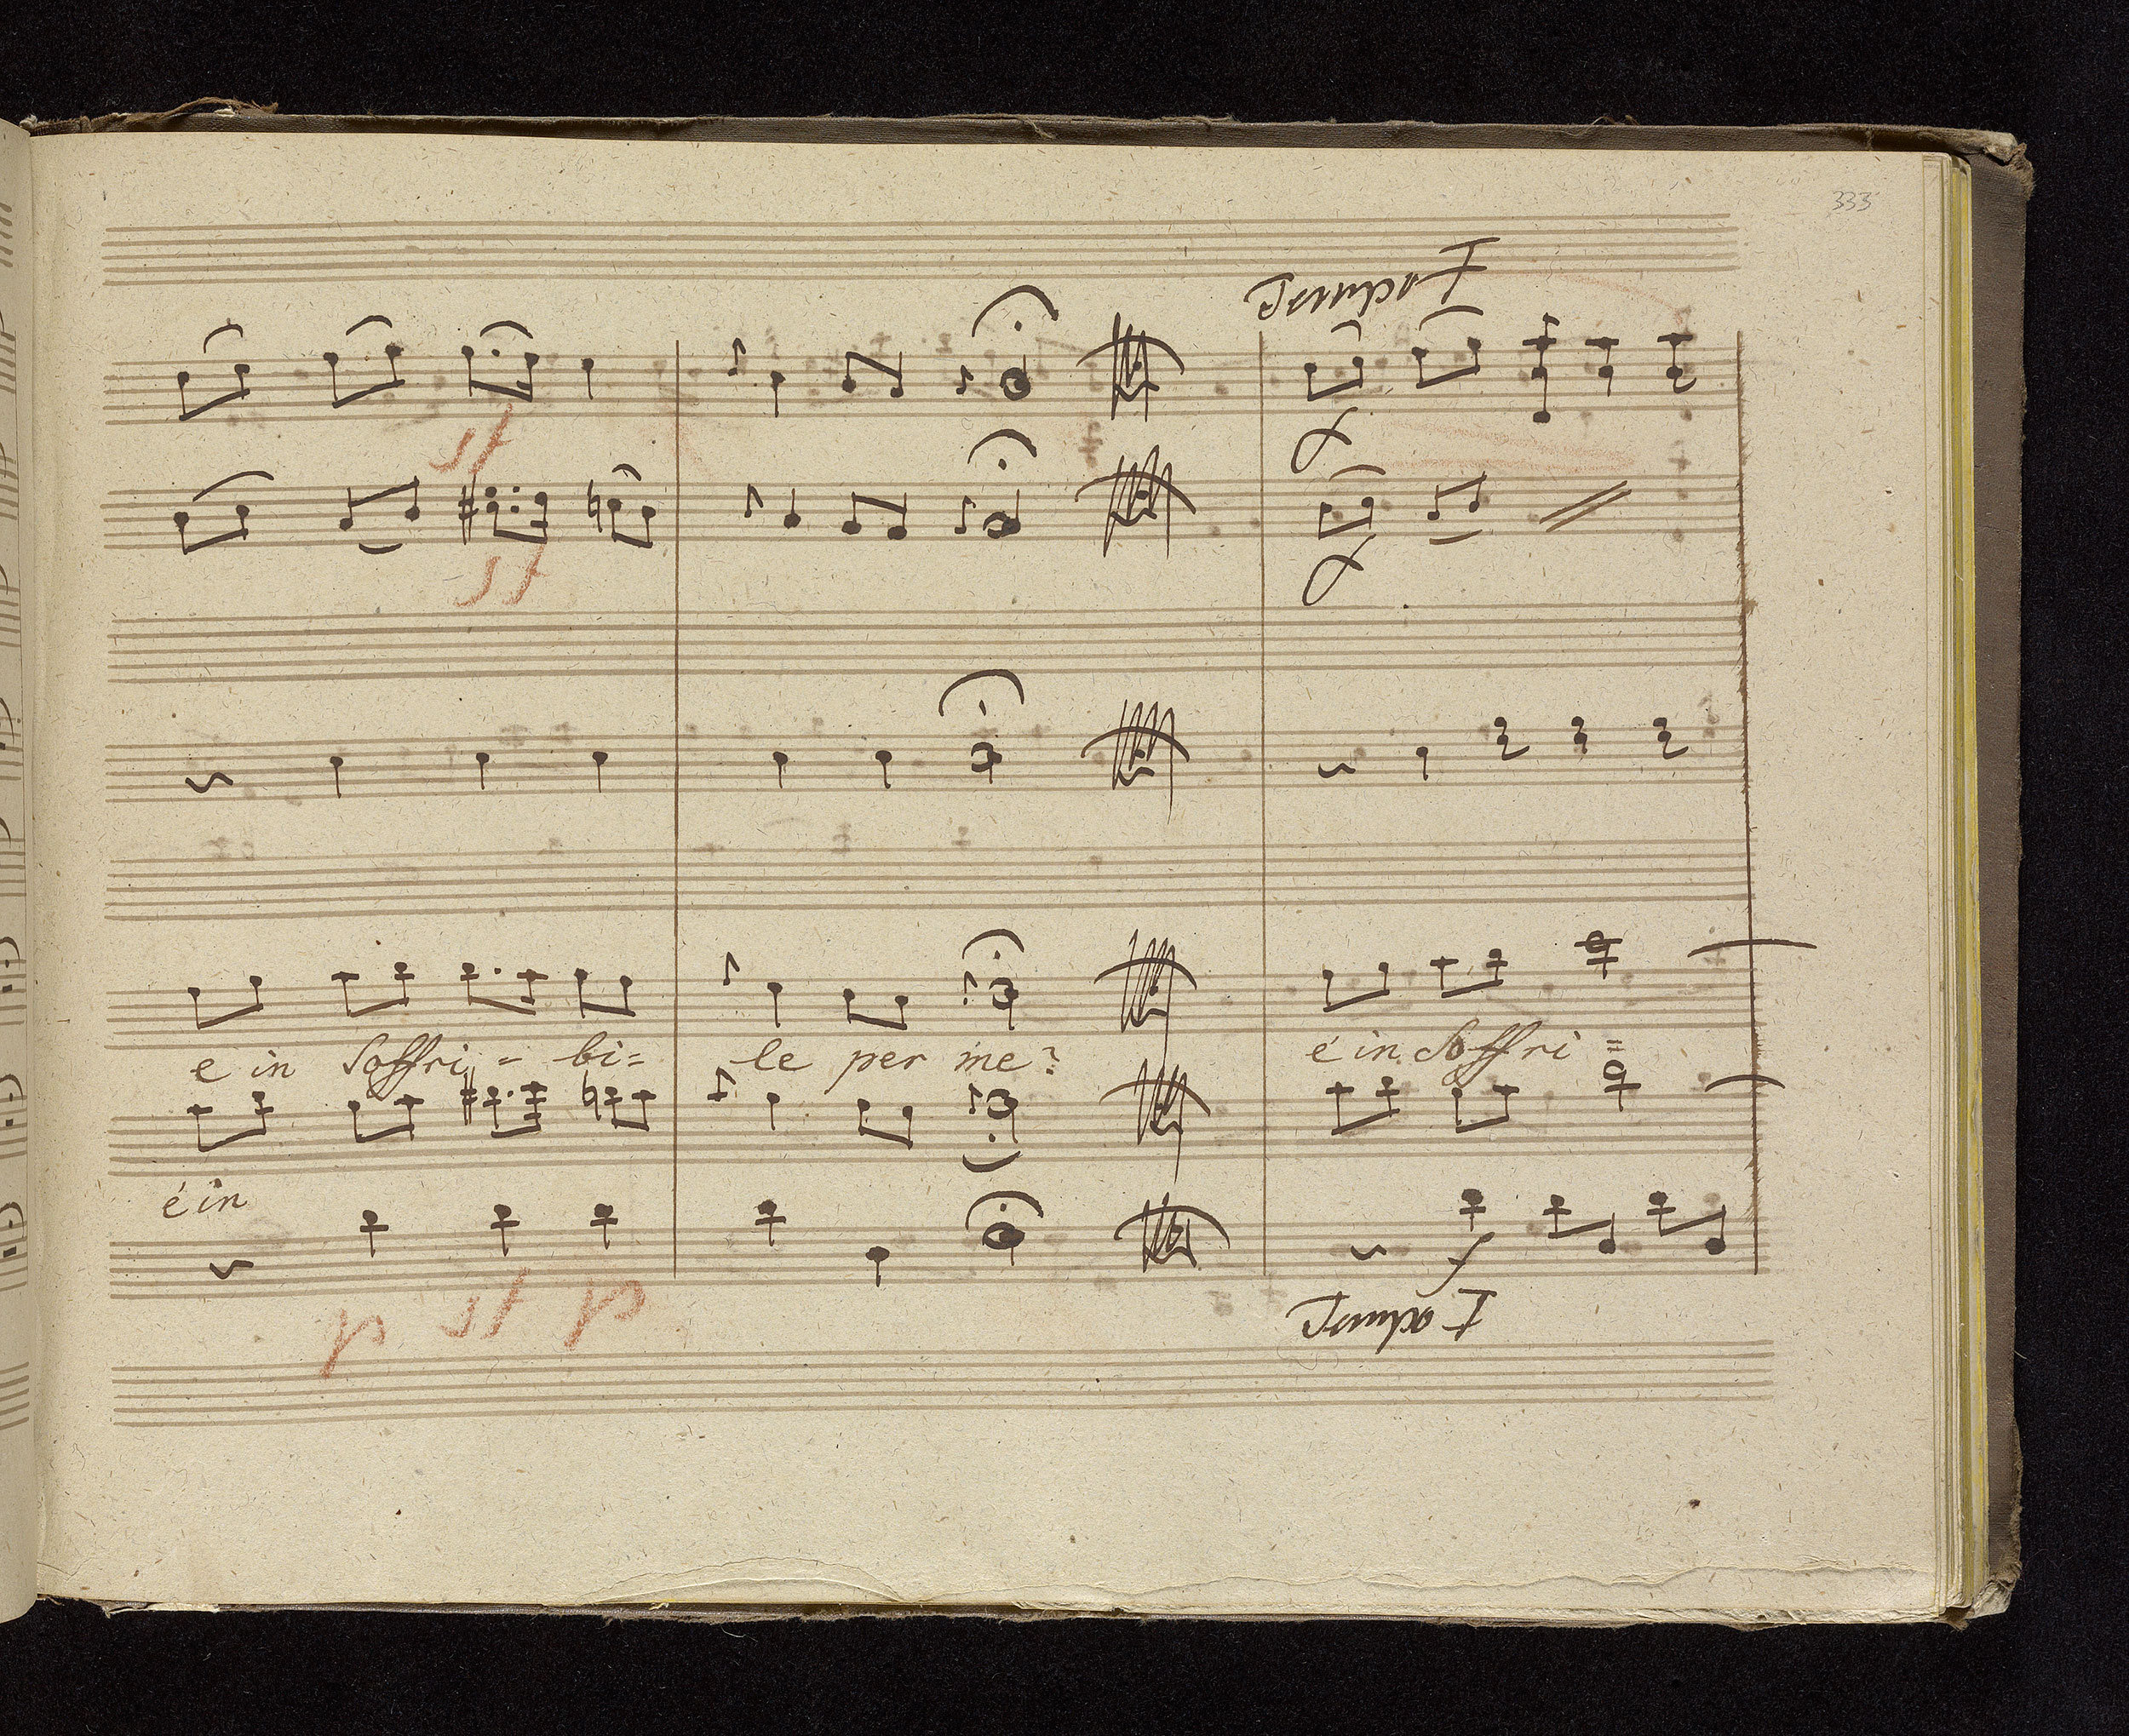 333
Tempo I
sf
f
sf
f
e in Soffri = bi = le per me? é in Soffri =
é in
f
p sf p
Tempo I